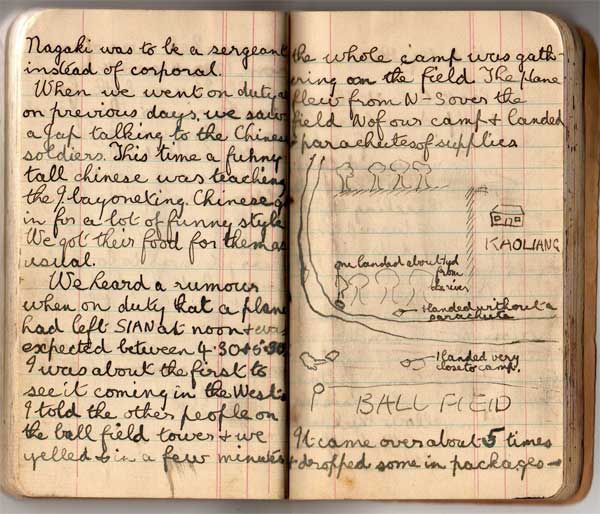 Nagaki was to be a sergeant
instead of corporal.
When we went on duty as
on previous days, we saw
a Jap talking to the Chinese
soldiers. This time a funny
tall chinese was teaching
the J. bayoneting. Chinese go
in for a lot of funny style
We got their food for them as
usual.
We heard a rumour
when on duty that a plane
had left SIAN at noon & was
expected between 4.30 & 5.30.
I was about the first to
see it coming in the West.
I told the other people on
the ball field tower & we
yelled & in a few minutes
the whole camp was gath-
ering on the field The plane
flew from N-S over the
field N of our camp & landed
parachutes of supplies
KAOLIANG
one landed about 1yd
from
the river
1 landed without a
parachute
1 landed very
close to camp.
BALL FIELD
It came over about 5 times
& dropped some in packages